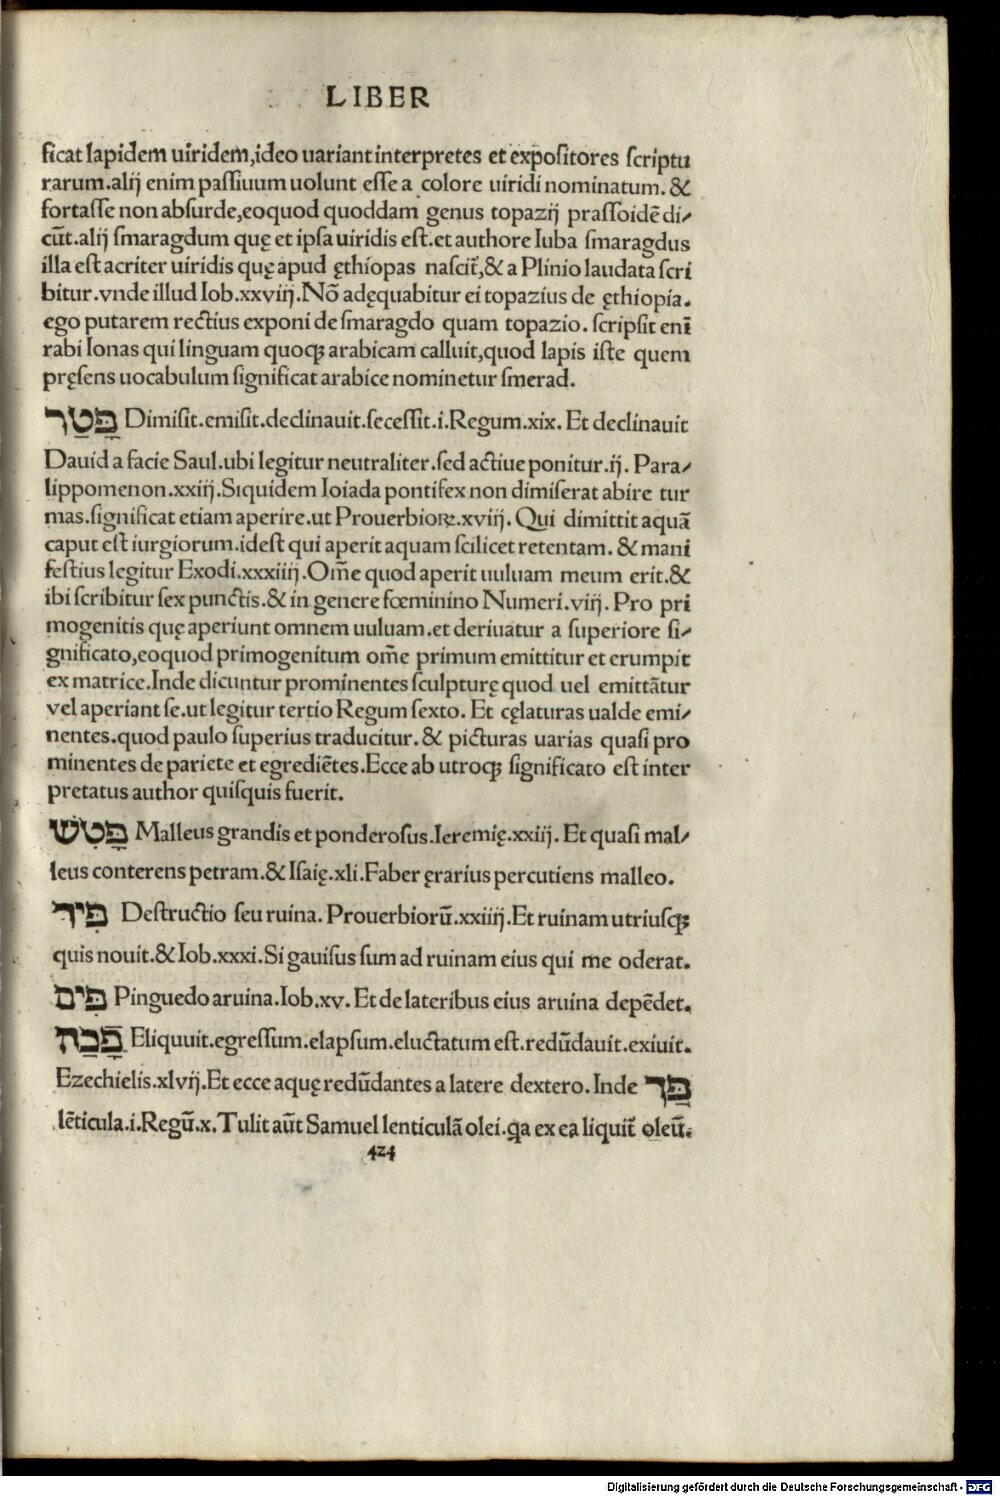 LIBER
ficat lapidem uiridem,ideo uariant interpretes et expositores scriptu
rarum.alij enim passiuum uolunt esse a colore uiridi nominatum. &
fortasse non absurde,eoquod quoddam genus topazij prassoidē di/
cūt.alij smaragdum quę et ipsa uiridis est.et authore Iuba smaragdus
illa est acriter uiridis quę apud ęthiopas nascit̃,& a Plinio laudata scri
bitur.vnde illud Iob.xxviij.Nō adęquabitur ei topazius de ęthiopia.
ego putarem rectius exponi de smaragdo quam topazio. scripsit enī
rabi Ionas qui linguam quoqꝫ arabicam calluit,quod lapis iste quem
pręsens uocabulum significat arabice nominetur smerad.
פָּטַר Dimisit.emisit.declinauit.secessit.i.Regum.xix. Et declinauit
Dauid a facie Saul.ubi legitur neutraliter.sed actiue ponitur.ij. Para/
lippomenon.xxiij.Siquidem Ioiada pontifex non dimiserat abire tur
mas.significat etiam aperire.ut Prouerbioꝝ.xvij. Qui dimittit aquā
caput est iurgiorum.idest qui aperit aquam scilicet retentam. & mani
festius legitur Exodi.xxxiiij.Om̃e quod aperit uuluam meum erit.&
ibi scribitur sex punctis.& in genere fœminino Numeri.viij. Pro pri
mogenitis quę aperiunt omnem uuluam.et deriuatur a superiore si/
gnificato,eoquod primogenitum om̃e primum emittitur et erumpit
ex matrice.Inde dicuntur prominentes sculpturę quod uel emittātur
vel aperiant se.ut legitur tertio Regum sexto. Et cęlaturas ualde emi/
nentes.quod paulo superius traducitur. & picturas uarias quasi pro
minentes de pariete et egrediētes.Ecce ab utroqꝫ significato est inter
pretatus author quisquis fuerit.
פָּטִשׁ Malleus grandis et ponderosus.Ieremię.xxiij. Et quasi mal/
leus conterens petram.& Isaię.xli.Faber ęrarius percutiens malleo.
פִּיד Destructio seu ruina. Prouerbiorū.xxiiij.Et ruinam utriusqꝫ
quis nouit.& Iob.xxxi.Si gauisus sum ad ruinam eius qui me oderat.
פִּים Pinguedo aruina.Iob.xv. Et de lateribus eius aruina depēdet.
פָּכַה Eliquuit.egressum.elapsum.eluctatum est.redūdauit.exiuit.
Ezechielis.xlvij.Et ecce aquę redūdantes a latere dextero. Inde פַּך
lēticula.i.Regū.x.Tulit aūt Samuel lenticulā olei.qa ex ea liquit̃ oleū.
424
Digitalisierung gefördert durch die Deutsche Forschungsgemeinschaft - DFG